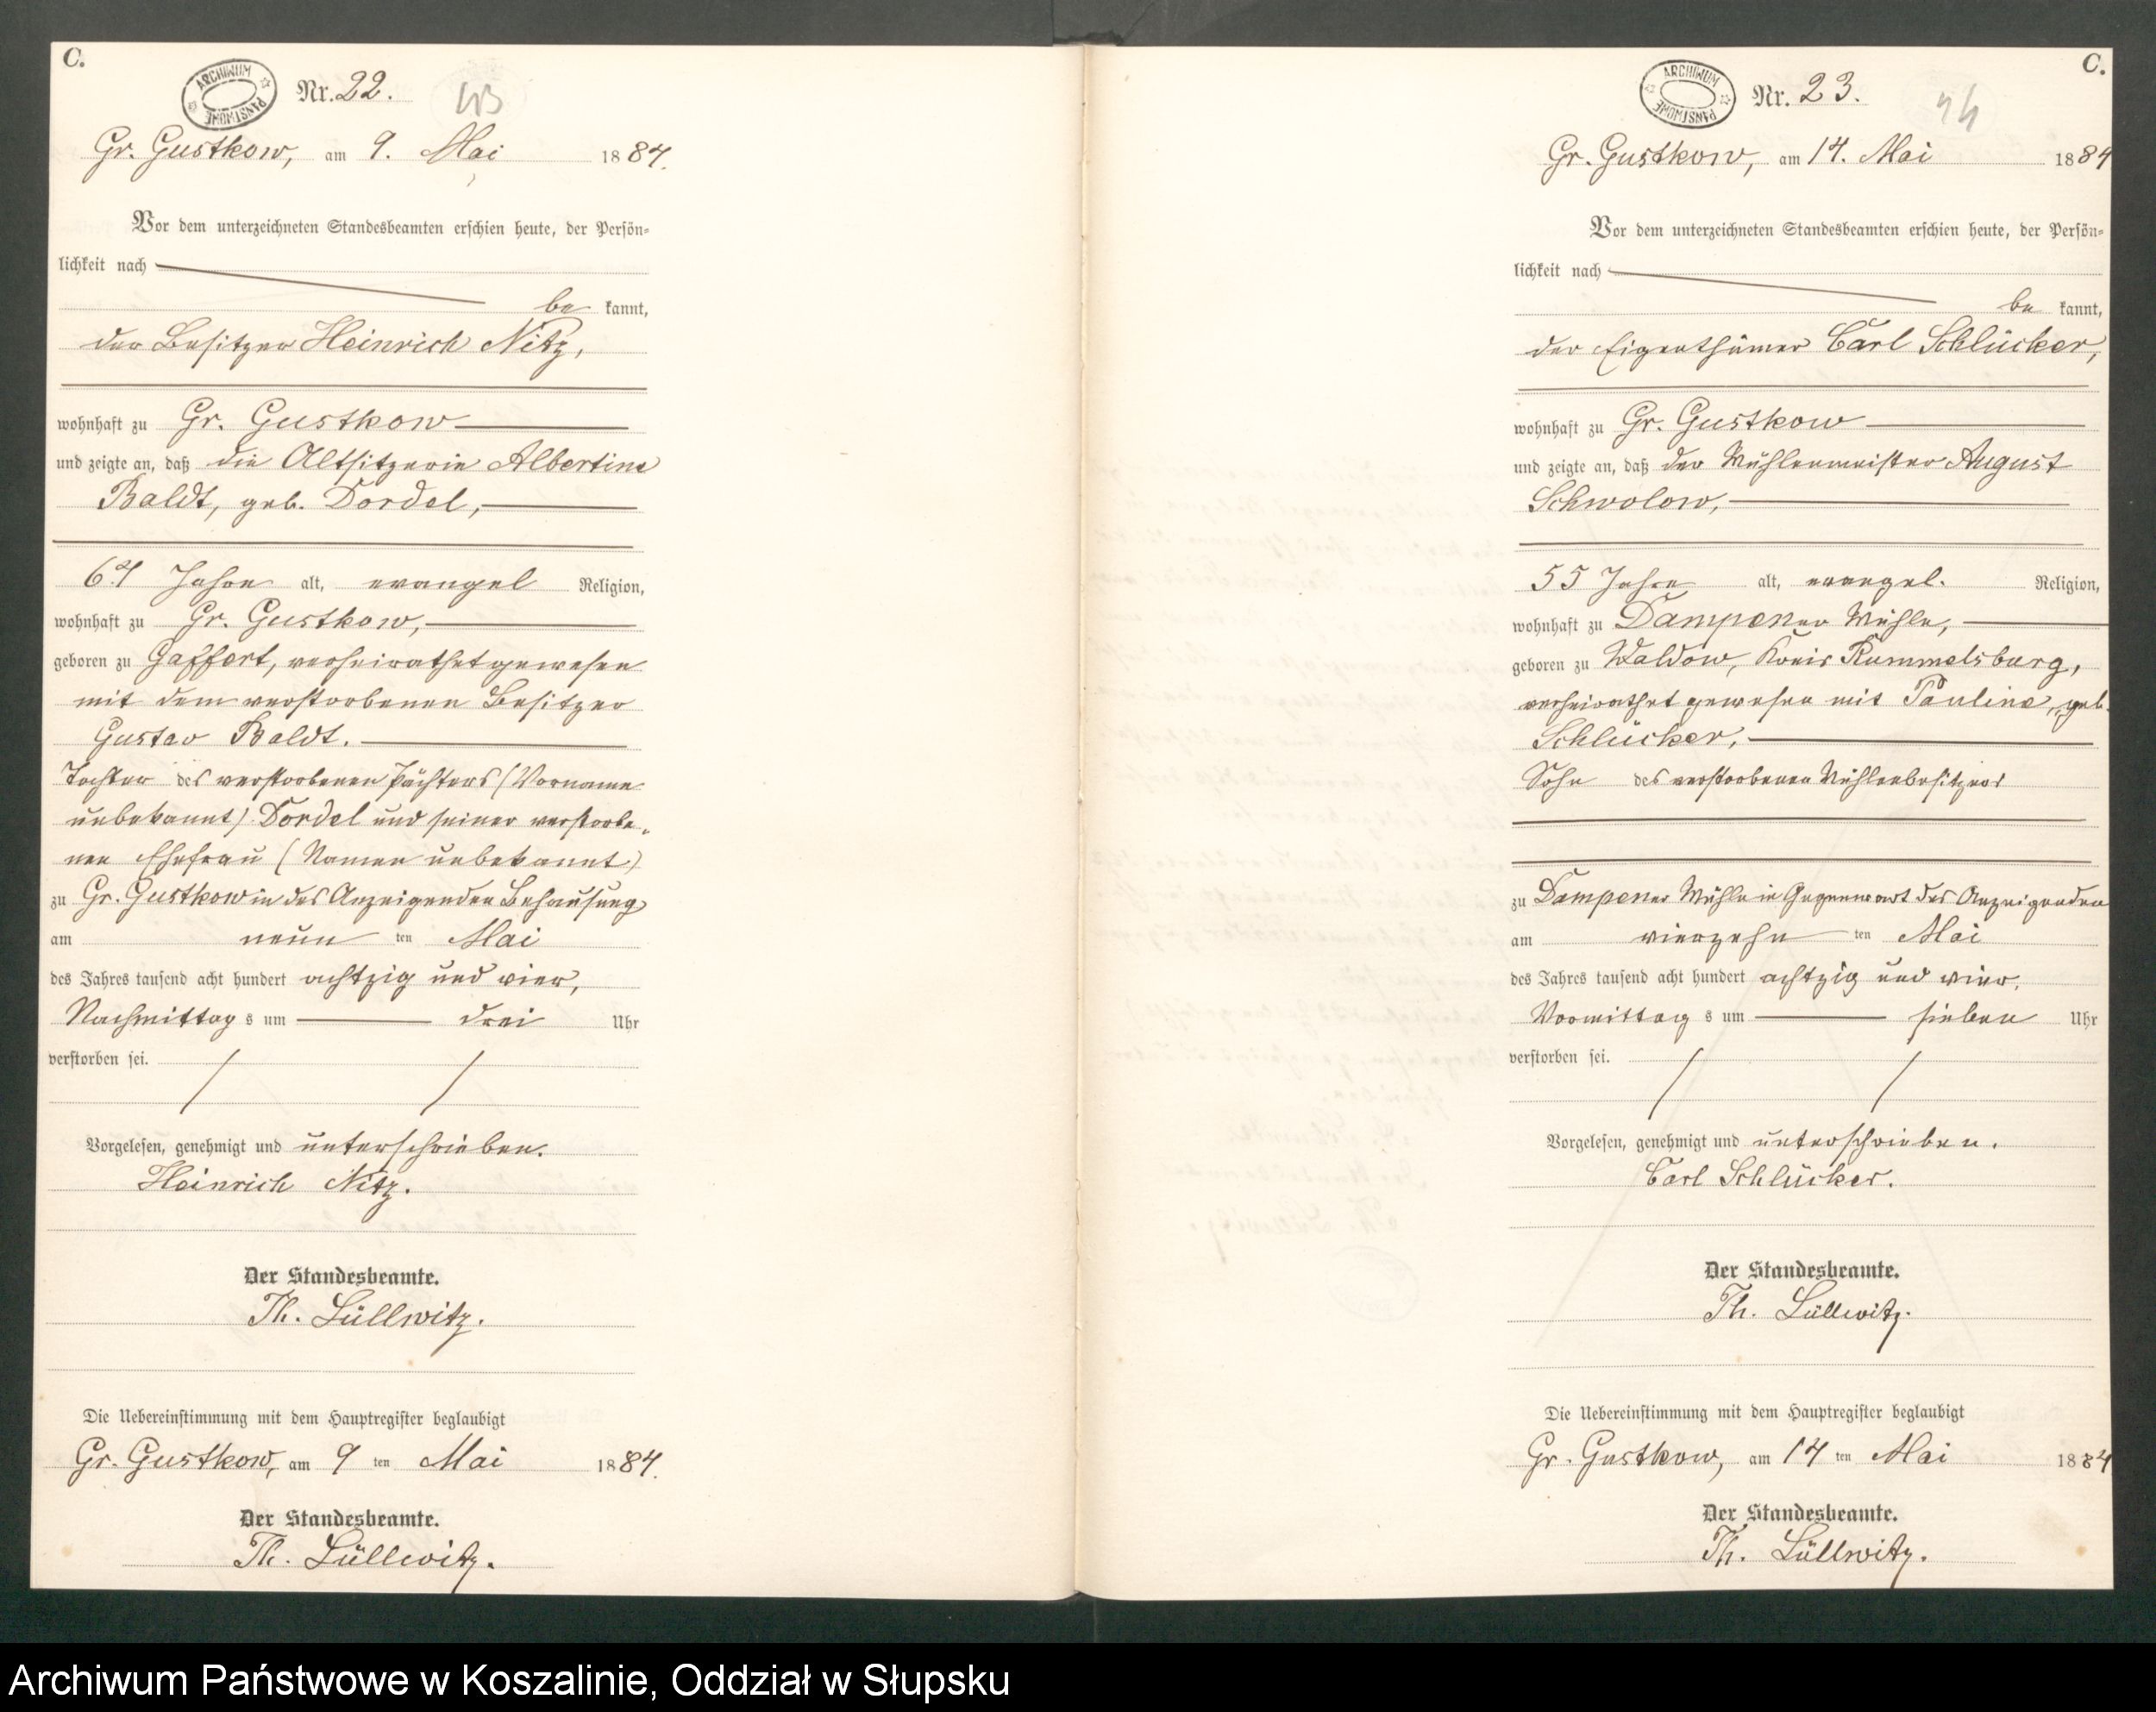 C.
ARCHIWUM PAŃSTWOWE
Nr. 22.
43
Gr. Gustkow, am 9. Mai 1884.
Vor dem unterzeichneten Standesbeamten erschien heute, der Persön-
lichkeit nach
be kannt,
der Besitzer Heinrich Nitz,
wohnhaft zu Gr. Gustkow
und zeigte an, daß die Altsitzerin Albertine
Baldt, geb. Dordel,
64 Jahre alt, evangel Religion,
wohnhaft zu Gr. Gustkow,
geboren zu Gaffert, verheirathet gewesen
mit dem verstorbenen Besitzer
Gustav Baldt.
Tochter des verstorbenen Pächters (Vorname
unbekannt) Dordel und seiner verstorbe-
nen Ehefrau (Namen unbekannt)
zu Gr. Gustkow in des Anzeigenden Behausung
am neun ten Mai
des Jahres tausend acht hundert achtzig und vier,
Nachmittag s um drei Uhr
verstorben sei.
Vorgelesen, genehmigt und unterschrieben.
Heinrich Nitz.
Der Standesbeamte.
Th. Lüllwitz.
Die Uebereinstimmung mit dem Hauptregister beglaubigt
Gr. Gustkow, am 9 ten Mai 1884.
Der Standesbeamte.
Th. Lüllwitz.
C.
ARCHIWUM PAŃSTWOWE
Nr. 23.
44
Gr. Gustkow, am 14. Mai 1884
Vor dem unterzeichneten Standesbeamten erschien heute, der Persön-
lichkeit nach
be kannt,
der Eigenthümer Carl Schlücker,
wohnhaft zu Gr. Gustkow
und zeigte an, daß der Mühlenmeister August
Schwolow,
55 Jahre alt, evangel. Religion,
wohnhaft zu Dampener Mühle,
geboren zu Waldow, Kreis Rummelsburg,
verheirathet gewesen mit Pauline, geb.
Schlücker,
Sohn des verstorbenen Mühlenbesitzers
zu Dampener Mühle in Gegenwart des Anzeigenden
am vierzehn ten Mai
des Jahres tausend acht hundert achtzig und vier,
Vormittag s um sieben Uhr
verstorben sei.
Vorgelesen, genehmigt und unterschrieben.
Carl Schlücker.
Der Standesbeamte.
Th. Lüllwitz.
Die Uebereinstimmung mit dem Hauptregister beglaubigt
Gr. Gustkow, am 14 ten Mai 1884
Der Standesbeamte.
Th. Lüllwitz.
Archiwum Państwowe w Koszalinie, Oddział w Słupsku